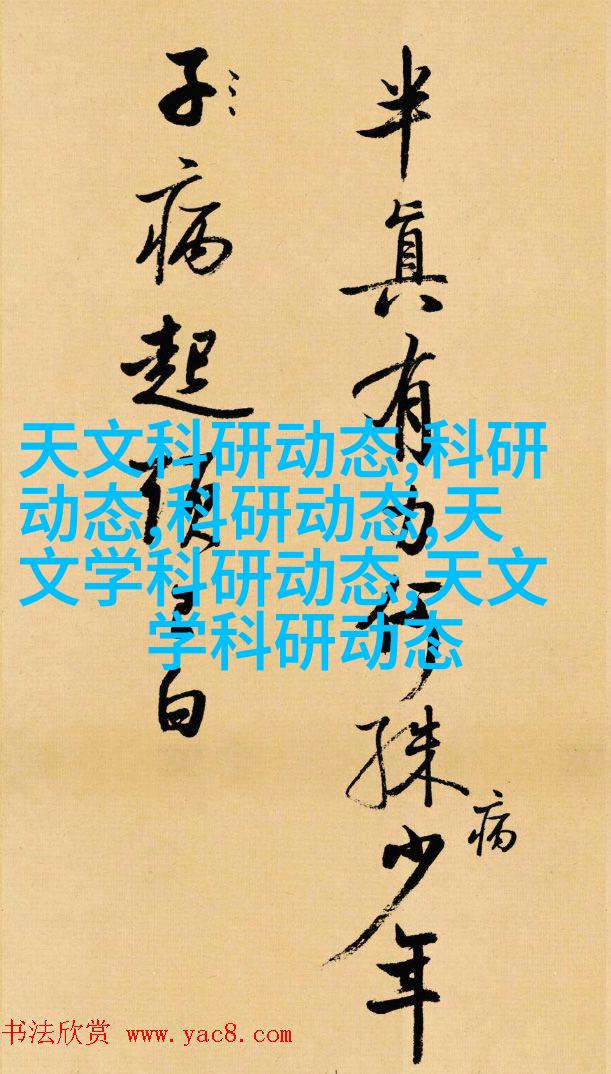 半真有力何殊少年
病
子病起頭已白
天文科研动态,科研
动态,科研动态,天
文学科研动态,天文
学科研动态
书法欣赏 www.yac8.com